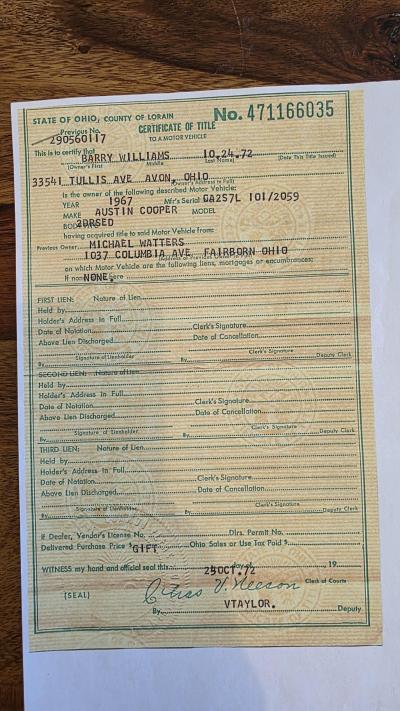 STATE OF OHIO, COUNTY OF LORAIN
No. 471166035
Previous No.
290560117
CERTIFICATE OF TITLE
TO A MOTOR VEHICLE
This is to certify that
BARRY WILLIAMS 10.24.72
(Owner's First Middle Last Name) (Date This Title Issued)
33541 TULLIS AVE AVON, OHIO
(Owner's Address in Full)
is the owner of the following described Motor Vehicle:
YEAR 1967 Mfr's Serial CA2S7L 101/2059
MAKE AUSTIN COOPER MODEL
BODY 2DRSED
having acquired title to said Motor Vehicle from:
Previous Owner MICHAEL WATTERS
1037 COLUMBIA AVE FAIRBORN OHIO
on which Motor Vehicle are the following liens, mortgages or encumbrances:
If none NONE. here
FIRST LIEN: Nature of Lien
Held by
Holder's Address in Full
Date of Notation Clerk's Signature
Above Lien Discharged Date of Cancellation
Signature of Lienholder Clerk's Signature
By By Deputy Clerk
SECOND LIEN: Nature of Lien
Held by
Holder's Address in Full
Date of Notation Clerk's Signature
Above Lien Discharged Date of Cancellation
Signature of Lienholder Clerk's Signature
By By Deputy Clerk
THIRD LIEN: Nature of Lien
Held by
Holder's Address in Full
Date of Notation Clerk's Signature
Above Lien Discharged Date of Cancellation
Signature of Lienholder Clerk's Signature
By By Deputy Clerk
If Dealer, Vendor's License No. Dlrs. Permit No.
Delivered Purchase Price $ GIFT Ohio Sales or Use Tax Paid $
WITNESS my hand and official seal this day of , 19
OCT.72
Clerk of Courts
(SEAL)
By VTAYLOR. Deputy